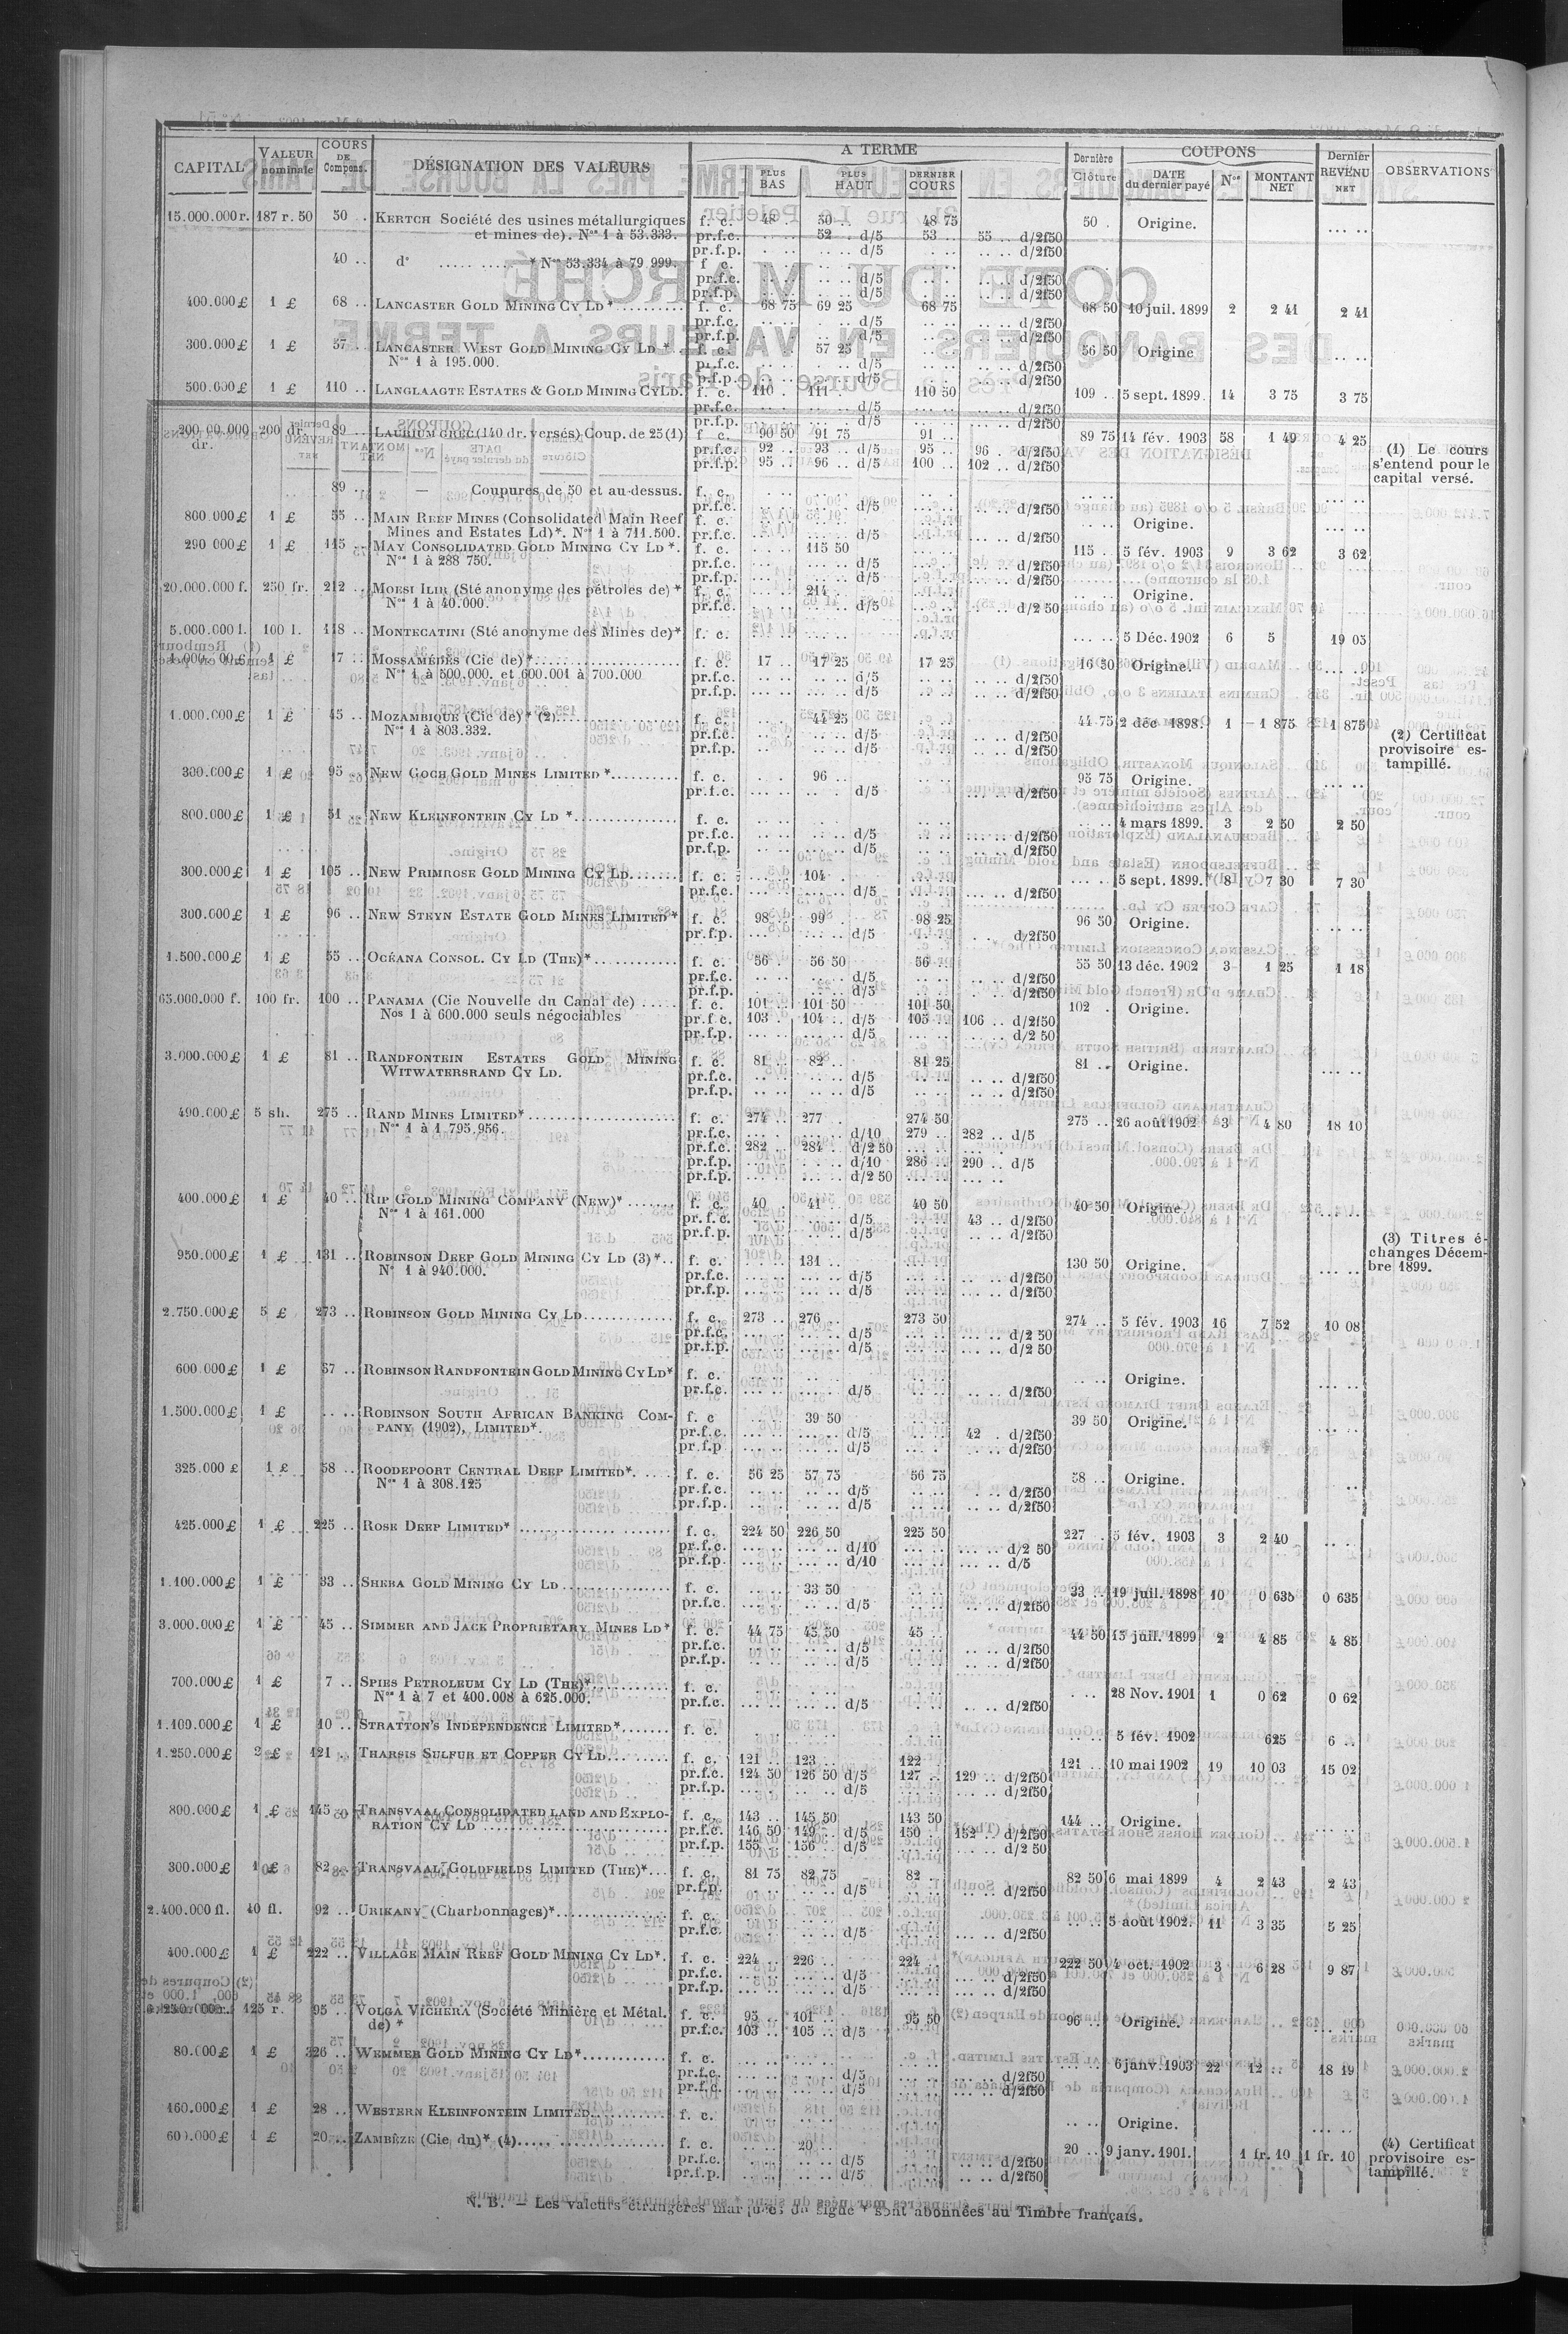 CAPITAL VALEUR nominale COURS DE Compens. DÉSIGNATION DES VALEURS A TERME PLUS BAS PLUS HAUT DERNIER COURS Dernière Clôture COUPONS DATE du dernier payé Nos MONTANT NET Dernier REVENU NET OBSERVATIONS
15.000.000 r. 187 r. 50 50 . KERTCH Société des usines métallurgiques f. c. 48 . 50 .. 48 75 50 . Origine. ... ..
et mines de). Nos 1 à 53.333. pr.f.c. 52 .. d/5 53 .. 55 .. d/2f50
pr.f.p. d/5 d/2f50
40 .. d° ..... ..... * Nos 53.334 à 79.999. f c.
pr.f.c. d/5 d/2f50
pr.f.p. d/5 d/2f50
400.000 £ 1 £ 68 .. LANCASTER GOLD MINING CY LD *.......... f. c. 68 75 69 25 68 75 68 50 10 juil. 1899 2 2 41 2 41
pr.f.c. d/5 d/2f50
pr.f.p. d/5 d/2f50
300.000 £ 1 £ 57 .. LANCASTER WEST GOLD MINING CY LD * f. c. 57 25 56 50 Origine
Nos 1 à 195.000. pr.f.c. d/5 d/2f50
pr.f.p. d/5 d/2f50
500.000 £ 1 £ 110 .. LANGLAAGTE ESTATES & GOLD MINING CY LD. f. c. 110 . 111 . 110 50 109 .. 5 sept. 1899. 14 3 75 3 75
pr.f.c. d/5 d/2f50
d/5 d/2f50
200 dr. 89 .. LAURIUM GREC (140 dr. versés) Coup. de 25 (1) f c. 90 50 91 75 91 .. 89 75 14 fév. 1903 58 1 49 4 25
dr. pr.f.c. 92 .. 93 .. d/5 95 .. 96 . d/2f50 (1) Le cours
pr.f.p. 95 .. 96 .. d/5 100 .. 102 .. d/2f50 s'entend pour le
capital versé.
89 .. — Coupures de 50 et au-dessus. f. c.
pr.f.c. d/5 d/2f50
800.000 £ 1 £ 55 .. MAIN REEF MINES (Consolidated Main Reef f. c. Origine.
Mines and Estates Ld)*. Nos 1 à 711.500. pr.f.c. d/5 d/2f50
290 000 £ 1 £ 115 .. MAY CONSOLIDATED GOLD MINING CY LD *. f. c. 115 50 115 .. 5 fév. 1903 9 3 62 3 62
Nos 1 à 288 750. pr.f.c. d/5 d/2f50
pr.f.p. d/5 d/2f50
20.000.000 f. 250 fr. 212 .. MOESI ILIR (Sté anonyme des pétroles de) * f. c. 214 .. Origine.
Nos 1 à 40.000. pr.f.c. d/5 d/2 50
5.000.000 l. 100 l. 118 .. MONTECATINI (Sté anonyme des Mines de)* f. c. 5 Déc. 1902 6 5 19 05
1 £ 17 .. MOSSAMÉDÈS (Cie de)*.................. f. c. 17 .. 17 25 17 25 16 50 Origine.
Nos 1 à 500.000. et 600.001 à 700.000 pr.f.c. d/5 d/2f50
pr.f.p. d/5 d/2f50
1.000.000 £ 1 £ 45 .. MOZAMBIQUE (Cie de)* (2)............... f. c. 44 25 44 75 2 déc 1898. 1 1 875 1 875
Nos 1 à 803.332. pr.f.c. d/5 d/2f50 (2) Certificat
pr.f.p. d/5 d/2f50 provisoire es-
tampillé.
300.000 £ 1 £ 95 .. NEW GOCH GOLD MINES LIMITED *.......... f. c. 96 .. 95 75 Origine.
pr.f.c. d/5 d/2f50
800.000 £ 1 £ 51 .. NEW KLEINFONTEIN CY LD *.............. f. c. 4 mars 1899. 3 2 50 2 50
pr.f.c. d/5 d/2f50
pr.f.p. d/5 d/2f50
300.000 £ 1 £ 105 .. NEW PRIMROSE GOLD MINING CY LD....... f. c. 104 . 5 sept. 1899. 8 7 30 7 30
pr.f.c. d/5 d/2f50
300.000 £ 1 £ 96 .. NEW STEYN ESTATE GOLD MINES LIMITED * f. c. 98 .. 99 . 98 25 96 50 Origine.
pr.f.p. d/5 d/2f50
1.500.000 £ 1 £ 55 .. OCEANA CONSOL. CY LD (THE)*............ f. c. 56 .. 56 50 56 .. 55 50 13 déc. 1902 3 1 25 1 18
pr.f.c. d/5 d/2f50
pr.f.p. d/5 d/2f50
65.000.000 f. 100 fr. 100 .. PANAMA (Cie Nouvelle du Canal de) ..... f. c. 101 .. 101 50 101 50 102 . Origine.
Nos 1 à 600.000 seuls négociables pr.f.c. 103 . 104 .. d/5 105 .. 106 .. d/2f50
pr.f.p. d/5 d/2 50
3.000.000 £ 1 £ 81 .. RANDFONTEIN ESTATES GOLD MINING f. c. 81 .. 82 .. 81 25 81 .. Origine.
WITWATERSRAND CY LD. pr.f.c. d/5 d/2f50
pr.f.p. d/5 d/2f50
490.000 £ 5 sh. 275 .. RAND MINES LIMITED*.................... f. c. 274 .. 277 .. 274 50 275 .. 26 août 1902 3 4 80 18 10
Nos 1 à 1.795.956. pr.f.c. d/10 279 .. 282 .. d/5
pr.f.c. 282 .. 284 .. d/2 50
pr.f.p. d/10 286 .. 290 .. d/5
pr.f.p. d/2 50
400.000 £ 1 £ 40 .. RIP GOLD MINING COMPANY (NEW)* ....... f. c. 40 . 41 .. 40 50 40 50 Origine.
Nos 1 à 161.000 pr.f.c. d/5 43 .. d/2f50
pr.f.p. d/5 d/2f50
950.000 £ 1 £ 131 .. ROBINSON DEEP GOLD MINING CY LD (3)*.. f. c. 131 .. 130 50 Origine. (3) Titres é-
Nos 1 à 940.000. pr.f.c. d/5 d/2f50 changes Décem-
pr.f.p. d/5 d/2f50 bre 1899.
2.750.000 £ 5 £ 273 .. ROBINSON GOLD MINING CY LD............ f. c. 273 .. 276 .. 273 50 274 .. 5 fév. 1903 16 7 52 10 08
pr.f.c. d/5 d/2 50
pr.f.p. d/5 d/2 50
600.000 £ 1 £ 57 .. ROBINSON RANDFONTEIN GOLD MINING CY LD* f. c. Origine.
pr.f.c. d/5 d/2f50
1.500.000 £ 1 £ .. .. ROBINSON SOUTH AFRICAN BANKING COM- f. c 39 50 39 50 Origine.
PANY (1902), LIMITED*. pr.f.c. d/5 42 . d/2f50
pr.f.p d/5 d/2f50
325.000 £ 1 £ 58 .. ROODEPOORT CENTRAL DEEP LIMITED*..... f. c. 56 25 57 75 56 75 58 .. Origine.
Nos 1 à 308.125 pr.f.c. d/5 d/2f50
pr.f.p. d/5 d/2f50
425.000 £ 1 £ 225 .. ROSE DEEP LIMITED* .................... f. c. 224 50 226 50 225 50 227 . 5 fév. 1903 3 2 40
pr.f.c. d/10 d/2 50
pr.f.p. d/10 d/5
1.100.000 £ 1 £ 33 .. SHEBA GOLD MINING CY LD ............... f. c. 33 50 33 .. 19 juil. 1898 10 0 635 0 635
pr.f.c. d/5 d/2f50
3.000.000 £ 1 £ 45 .. SIMMER AND JACK PROPRIETARY MINES LD* f. c. 44 75 45 50 45 .. 44 50 15 juil. 1899 2 4 85 4 85
pr.f.c. d/5 d/2f50
pr.f.p. d/5 d/2f50
700.000 £ 1 £ 7 .. SPIES PETROLEUM CY LD (THE)*.......... f. c. 28 Nov. 1901 1 0 62 0 62
Nos 1 à 7 et 400.008 à 625.000. pr.f.c. d/5 d/2f50
1.100.000 £ 1 £ 10 .. STRATTON'S INDEPENDENCE LIMITED*....... f. c. 5 fév. 1902 625 6 ..
1.250.000 £ 2 £ 121 .. THARSIS SULFUR ET COPPER CY LD......... f. c. 121 .. 123 .. 122 .. 121 .. 10 mai 1902 19 10 03 15 02
pr.f.c. 124 50 126 50 d/5 127 .. 129 .. d/2f50
pr.f.p. d/5 d/2f50
800.000 £ 1 £ 145 .. TRANSVAAL CONSOLIDATED LAND AND EXPLO- f. c. 143 .. 145 50 143 50 144 .. Origine.
RATION CY LD ......................... pr.f.c. 146 50 149 .. d/5 150 . 152 .. d/2f50
pr.f.p. 155 .. 156 .. d/5 d/2 50
300.000 £ 1 £ 82 .. TRANSVAAL GOLDFIELDS LIMITED (THE)*... f. c. 81 75 82 75 82 .. 82 50 6 mai 1899 4 2 43 2 43
pr.f.p. d/5 d/2f50
2.400.000 fl. 40 fl. 92 .. URIKANY (Charbonnages)*............... f. c. 5 août 1902. 11 3 35 5 25
pr.f.c. d/5 d/2f50
400.000 £ 1 £ 222 .. VILLAGE MAIN REEF GOLD MINING CY LD*. f. c. 224 .. 226 .. 224 .. 222 50 4 oct. 1902 3 6 28 9 87
pr.f.c. d/5 d/2f50
pr.f.p. d/5 d/2f50
125 r. 95 .. VOLGA VICHERA (Société Minière et Métal. f. c. 95 .. 101 .. 95 50 96 .. Origine.
de) * pr.f.c. 103 .. 105 .. d/5
80.000 £ 1 £ 326 .. WEMMER GOLD MINING CY LD*............ f. c. 6 janv. 1903 22 12 .. 18 19
pr.f.c. d/5 d/2f50
pr.f.c. d/5 d/2f50
160.000 £ 1 £ 28 .. WESTERN KLEINFONTEIN LIMITED.......... f. c. Origine.
600.000 £ 1 £ 20 .. ZAMBÈZE (Cie du)* (4)................. f. c. 20 .. 20 .. 9 janv. 1901. 1 fr. 10 1 fr. 10 (4) Certificat
pr.f.c. d/5 d/2f50 provisoire es-
pr.f.p. d/5 d/2f50 tampillé.
N. B. — Les valeurs étrangères marquées du signe * sont abonnées au Timbre français.